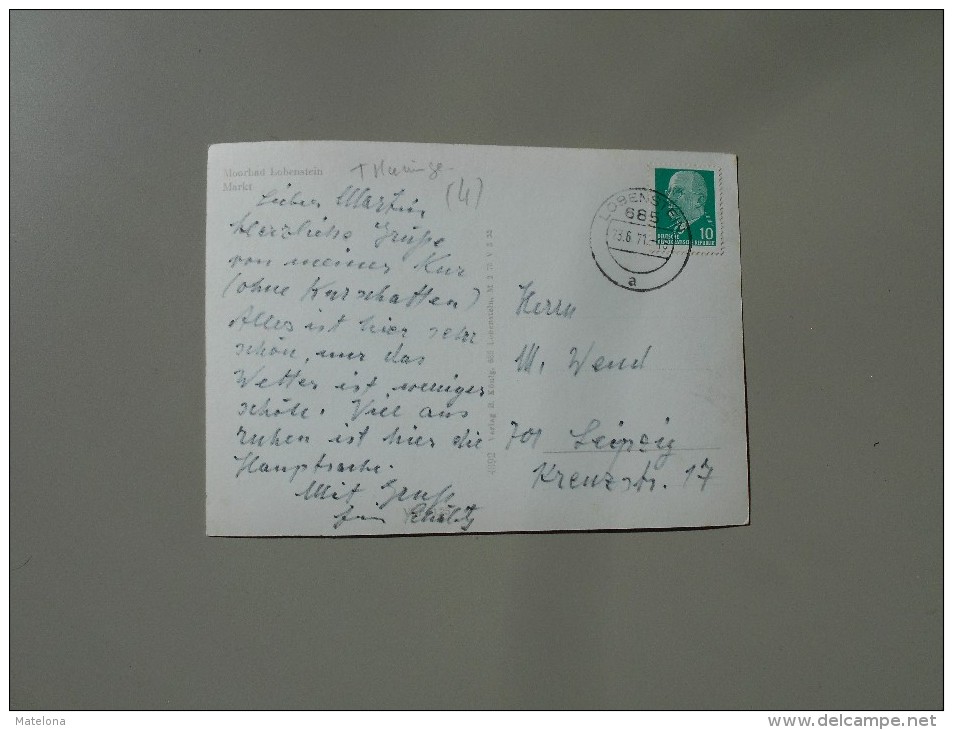 Moorbad Lobenstein
Markt
(4)
Lieber Martin
Herzliche Grüße
von meiner Kur
(ohne Kurschatten)
Alles ist hier sehr
schön, nur das
Wetter ist weniger
schön. Viel aus
ruhen ist hier die
Hauptsache.
Mit Gruß
LOBENSTEIN
685
23.6.71.
a
10
DEUTSCHE
DEMOKRATISCHE REPUBLIK
Herrn
M. Wend
701 Leipzig
Kreuzstr. 17
Matelona
www.delcampe.net